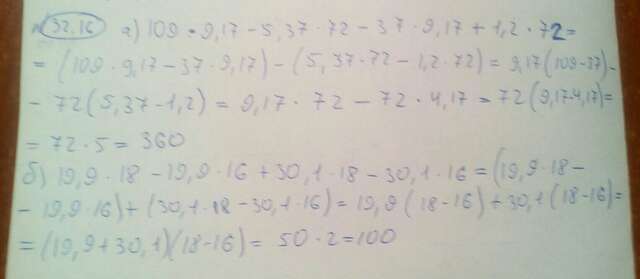 32.16 а) 109 · 9,17 - 5,37 · 72 - 37 · 9,17 + 1,2 · 72 =
= (109 · 9,17 - 37 · 9,17) - (5,37 · 72 - 1,2 · 72) = 9,17(109-37) -
- 72(5,37-1,2) = 9,17 · 72 - 72 · 4,17 = 72(9,17-4,17) =
= 72 · 5 = 360
б) 19,9 · 18 - 19,9 · 16 + 30,1 · 18 - 30,1 · 16 = (19,9 · 18 -
- 19,9 · 16) + (30,1 · 18 - 30,1 · 16) = 19,9(18-16) + 30,1(18-16) =
= (19,9+30,1)(18-16) = 50 · 2 = 100